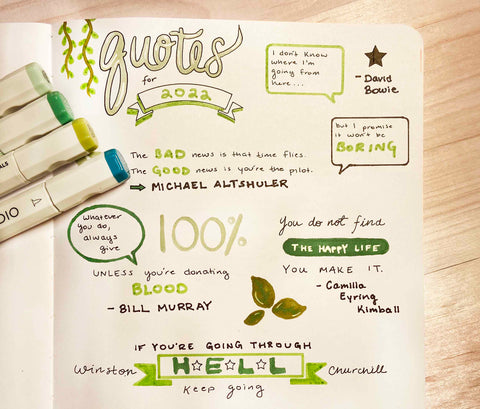 quotes
for
2022
I don't know
where I'm
going from
here...
- David
Bowie
but I promise
it won't be
BORING
The BAD news is that time flies.
The GOOD news is you're the pilot.
MICHAEL ALTSHULER
Whatever
you do,
always
give
100%
UNLESS you're donating
BLOOD
- BILL MURRAY
You do not find
THE HAPPY LIFE
YOU MAKE IT.
- Camilla
Eyring
Kimball
IF YOU'RE GOING THROUGH
H☆E☆L☆L
Winston Churchill
Keep going